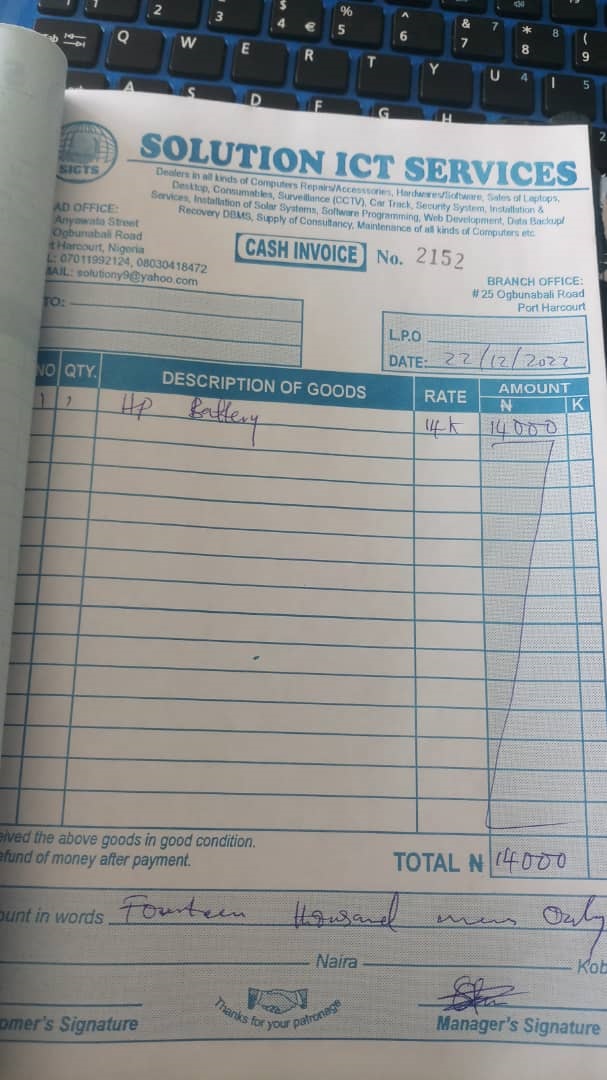 SOLUTION ICT SERVICES
SICTS
Dealers in all kinds of Computers Repairs/Accesssories, Hardwares/Software, Sales of Laptops,
Desktop, Consumables, Surveillance (CCTV), Car Track, Security System, Installation &
Services, Installation of Solar Systems, Software Programming, Web Development, Data Backup/
Recovery DBMS, Supply of Consultancy, Maintenance of all kinds of Computers etc.
AD OFFICE:
Anyawata Street
Ogbunabali Road
t Harcourt, Nigeria
L: 07011992124, 08030418472
MAIL: solutiony9@yahoo.com
CASH INVOICE No. 2152
BRANCH OFFICE:
#25 Ogbunabali Road
Port Harcourt
TO:
L.P.O
DATE: 22/12/2022
NO QTY. DESCRIPTION OF GOODS RATE AMOUNT
₦ K
1 1 HP Battery 14k 14000
eived the above goods in good condition.
efund of money after payment.
TOTAL ₦ 14000
ount in words Fourteen thousand Only
Naira Kob
Thanks for your patronage
omer's Signature
Manager's Signature